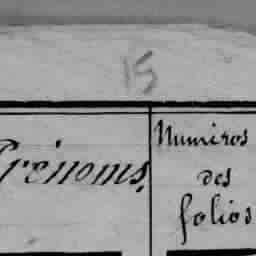 15
Prénoms,
Numéros
des
folios